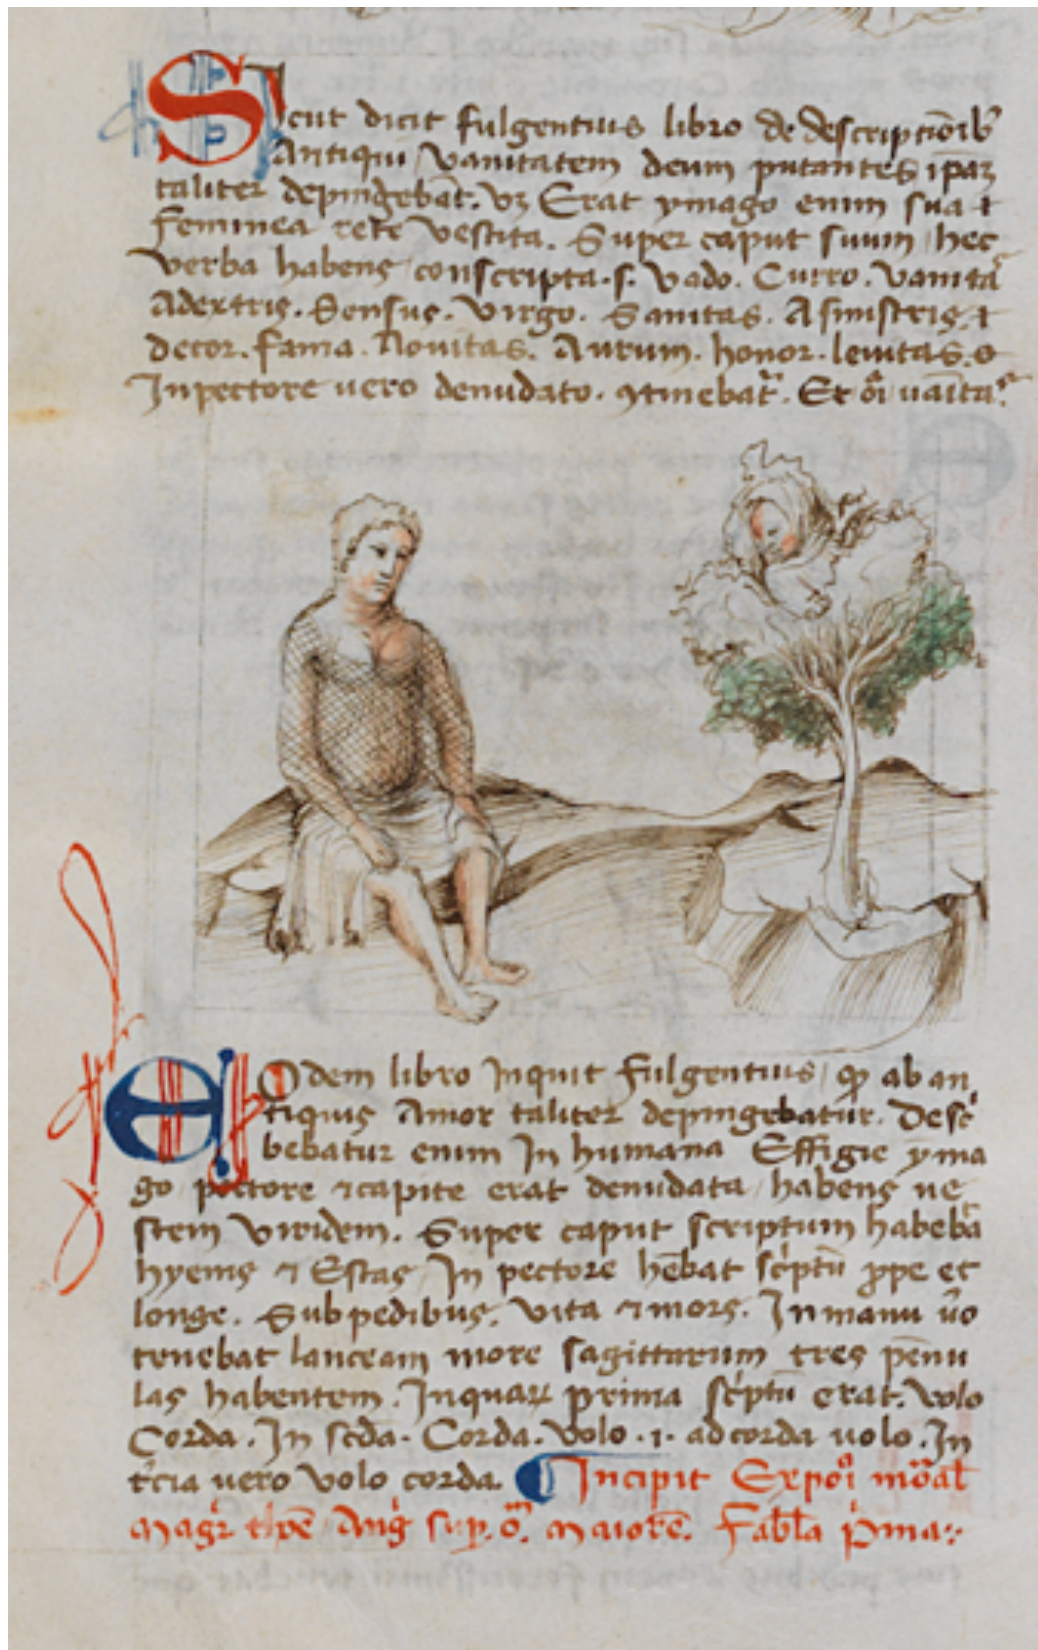 Sicut dicit fulgentius libro de descriptioīb᷒
Antiqui vanitatem deum putantes ip̄aꝫ
taliter depingebāt. vꝫ Erat ymago enim sua ⁊
feminea rete vestita. Super caput suum hec
verba habens conscripta. s. vado. Curro. vanita
Adextris. Sensus. virgo. Sanitas. Asinistris. ⁊
decor. fama. Novitas. Aurum. honor. levitas.
Inpectore vero denudato. ꝯtinebat᷑. Et oī uaīta
EOdem libro Inquit fulgentius ꝙ ab an
tiquis Amor taliter depingebatur. Desc͛
bebatur enim In humana Effigie yma
go pectore ⁊capite erat denudata habens ue
stem viridem. Super caput scriptum habeba
hyems ⁊ Estas In pectore hēbat sc͛ptū ꝓpe et
longe. Sub pedibus. vita ⁊mors. In manu u͛o
tenebat lanceam more sagittarum tres pēnu
las habentem. Inquaꝝ prima sc͛ptū erat. volo
Corda. In scd̄a. Corda. volo .i. ad corda uolo. In
t͛cia uero volo corda. ¶ Incipit Expoī mōal̄
Mag͛r Anḡ sup. maiorē. Fabl̄a p͛ma